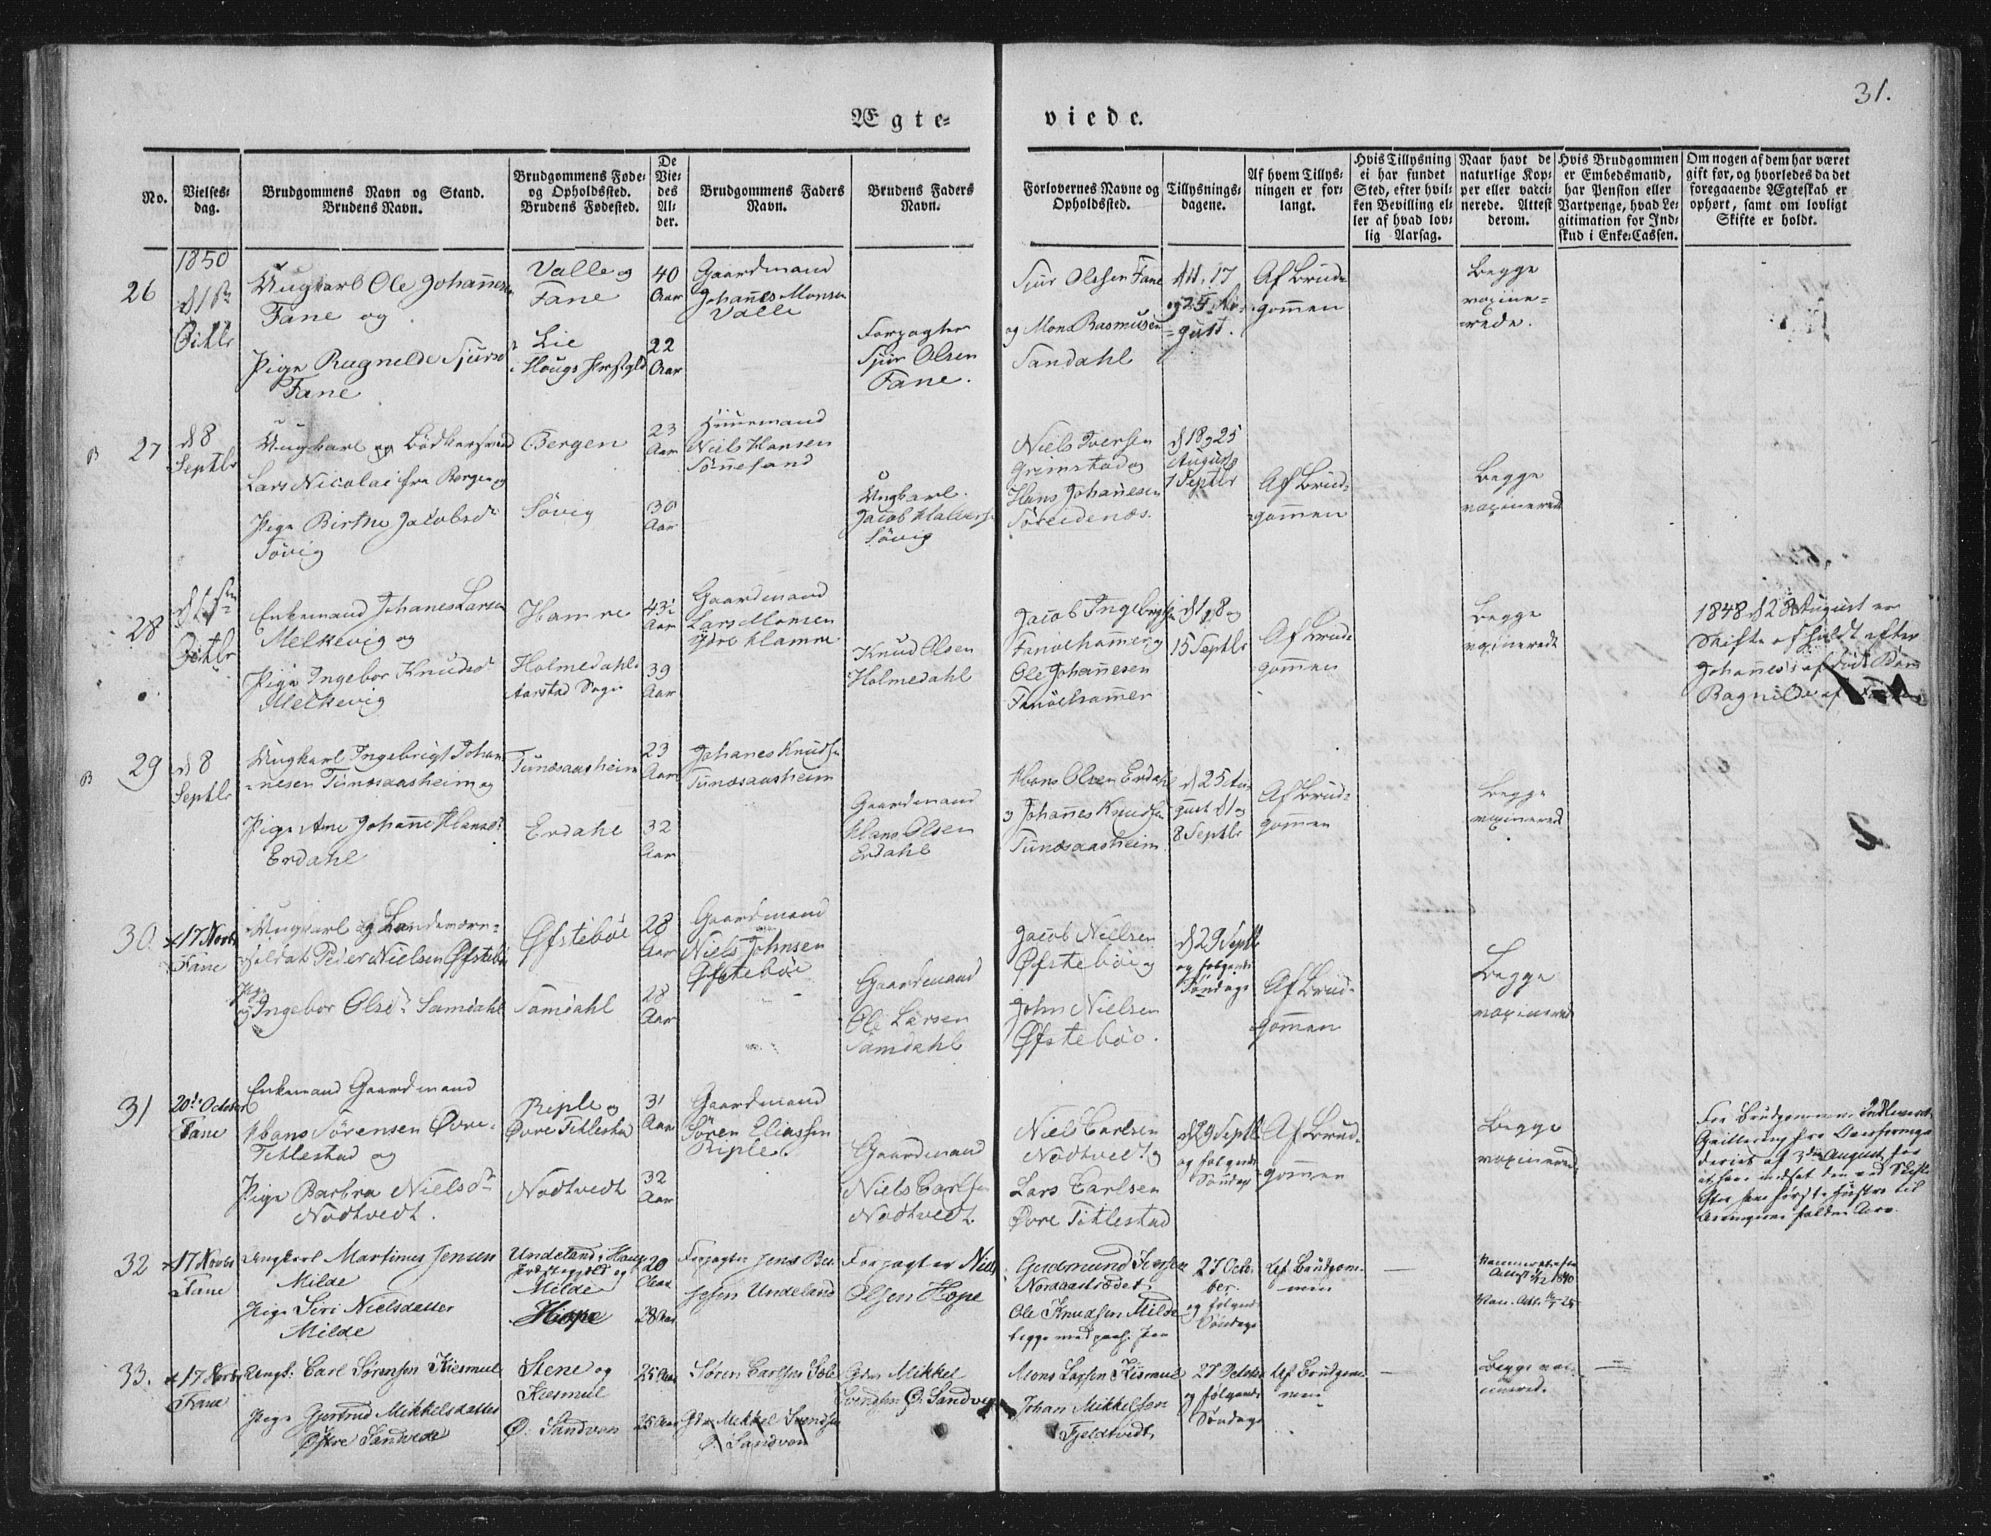 31.
Ægte-
viede.
No.
Vielses-
dag.
Brudgommens Navn og Stand.
Brudens Navn.
Brudgommens Føde-
og Opholdssted.
Brudens Fødested.
De
Vie-
des
Al-
der.
Brudgommens Faders
Navn.
Brudens Faders
Navn.
Forlovernes Navne og
Opholdssted.
Tillysnings-
dagene.
Af hvem Tillys-
ningen er for-
langt.
Hvis Tillysning
ei har fundet
Sted, efter hvil-
ken Bevilling el-
ler af hvad lov-
lig Aarsag.
Naar havt de
naturlige Kop-
per eller vacci-
nerede. Attest
derom.
Hvis Brudgommen
er Embedsmand,
har Pension eller
Vartpenge, hvad Le-
gitimation for Ind-
skud i Enke-Cassen.
Om nogen af dem har været
gift før, og hvorledes da det
foregaaende Ægteskab er
ophørt, samt om lovligt
Skifte er holdt.
1850
26
Octbr
Ungkarl Ole Johannes
Fane og
Pige Ragnilde Sjurs
Fane
Valle og
Fane
Lie
Hougs
40
Aar
22
Aar
Gaardmand
Johanes Monsen
Valle
Forpagter
Sjur Olsen
Fane.
Sjur Olssen Fane
og Mons Rasmussen
Sandahl
d 11, 17
og 25 Au-
gust.
Af Brud-
gommen
Begge
vaxine-
rede.
B
27
d 8
Septbr
Ungkarl og Bødkersvend
Lars Nicolai fra Bergen og
Pige Birthe Jacobsd
Søvig
Bergen
Søvig
23
Aar
30
Aar
Huusmand
Niels Hansen
Sønnesand
Ungkarl
Jacob Halvers
Søvig
Niels Iversen
Grimstad og
Hans Johannesen
Søreidenæs.
d 18 og 25
August og
1 Septbr
Af Brud-
gommen
Begge
vaxinerede
28
Octbr
Enkemand Johanes Larsen
Melkevig og
Pige Ingebor Knudsd
Melkevig
Hamre
Holmedahls
Aarstad Sogn
43
Aar
39
Aar
Gaardmand
Lars Monsen
Ydre Hamre
Knud Olsen
Holmedahl
Jacob Ingebrigtsen
Fanøehammer og
Ole Johannesen
Fanøehammer
d 1, 8 og
15 Septbr
Af Brud-
gommen
Begge
vaxinerede
1848 d 28 August er
Skifte afholdt efter
Johannes's afdøde Kone
Ragnilde af
B
29
d 8
Septbr
Ungkarl Ingebrigt Johan-
nesen Tunæsaasheim og
Pige Ane Johanne Hansd
Erdahl
Tunæsaasheim
Erdahl
23
Aar
32
Aar
Johanes Knudsen
Tunæsaasheim
Gaardmand
Hans Olsen
Erdahl
Hans Olsen Erdahl
og Johannes Knudsen
Tunæsaasheim
d 25 Au-
gust d 1 og
8 Septbr
Af Brud-
gommen
Begge
vaxinerede
30.
17 Novb
Fane
Ungkarl og Landeværn-
soldat Peder Nielsen Øfstebø
og Pige Ingebor Olsd Samdahl
Øfstebøe
Samdahl
28
Aar
28
Aar
Gaardmand
Niels Johnsen
Øfstebøe
Gaardmand
Ole Larsen
Samdahl
Jacob Nielsen
Øfstebøe og
John Nielsen
Øfstebøe.
d 29 Septb
og følgende
Søndage
Af Brud-
gommen
Begge
vaxinerede
31
20de October
Fane
Enkemand Gaardmand
Hans Sørensen Øvre-
Titlestad og
Pige Barbra Nielsd
Nodtvedt.
Riple og
Øvre Titlestad
Nodtvedt
31
Aar
32
Aar
Gaardmand
Søren Eliassen
Riple.
Gaardmand
Niels Carlsen
Nodtvedt
Niels Carlsen
Nodtvedt og
Lars Carlsen
Øvre Titlestad
d 29 Septb
og følgende
Søndage
Af Brud-
gommen
Begge
vaxinerede
For Brudgommen
Qvittering fra
August for
at have indsat den ved Skifte
efter hans første Hustru til
faldne Arv.
32
17 Novbr
Fane
Ungkarl Martinus Jensen
Milde
Pige Siri Nielsdatter
Milde
Undeland, Haugs
Præstegjeld og
Milde
Hope
20
Aar
28 Aar
Forpagter Jens
Undeland
Forpagter Niels
Olsen Hope
Gudmund Iversen
Nordaatræet
Ole Knudsen Milde
27 Octo-
ber
og følgende
Søndage
Af Brudgom-
men
—
1840
33.
17 Novbr
Fane
Ungk: Carl Sørensen Kiesmul
Pige Gjertrud Mikkelsdatter
Østre Sandvede
Stene og
Kiesmul
Ø. Sandven
25 Aar
25 Aar
Søren Carlsen
Gdm Mikkel Svendsen
Ø. Sandven
Gdm Mikkel
Svendsen Ø. Sandven
Mons Larsen Kismul
Johan Mikkelsen
Fjeldtvedt,
27 October
og følgende
Søndage
Af Brudgom-
men
—
Begge vac-
cinerede
—